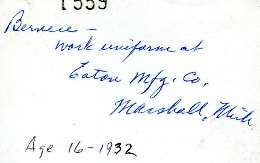 1559
Bernece —
work uniform at
Eaton Mfg. Co.
Marshall, Mich
Age 16 - 1932